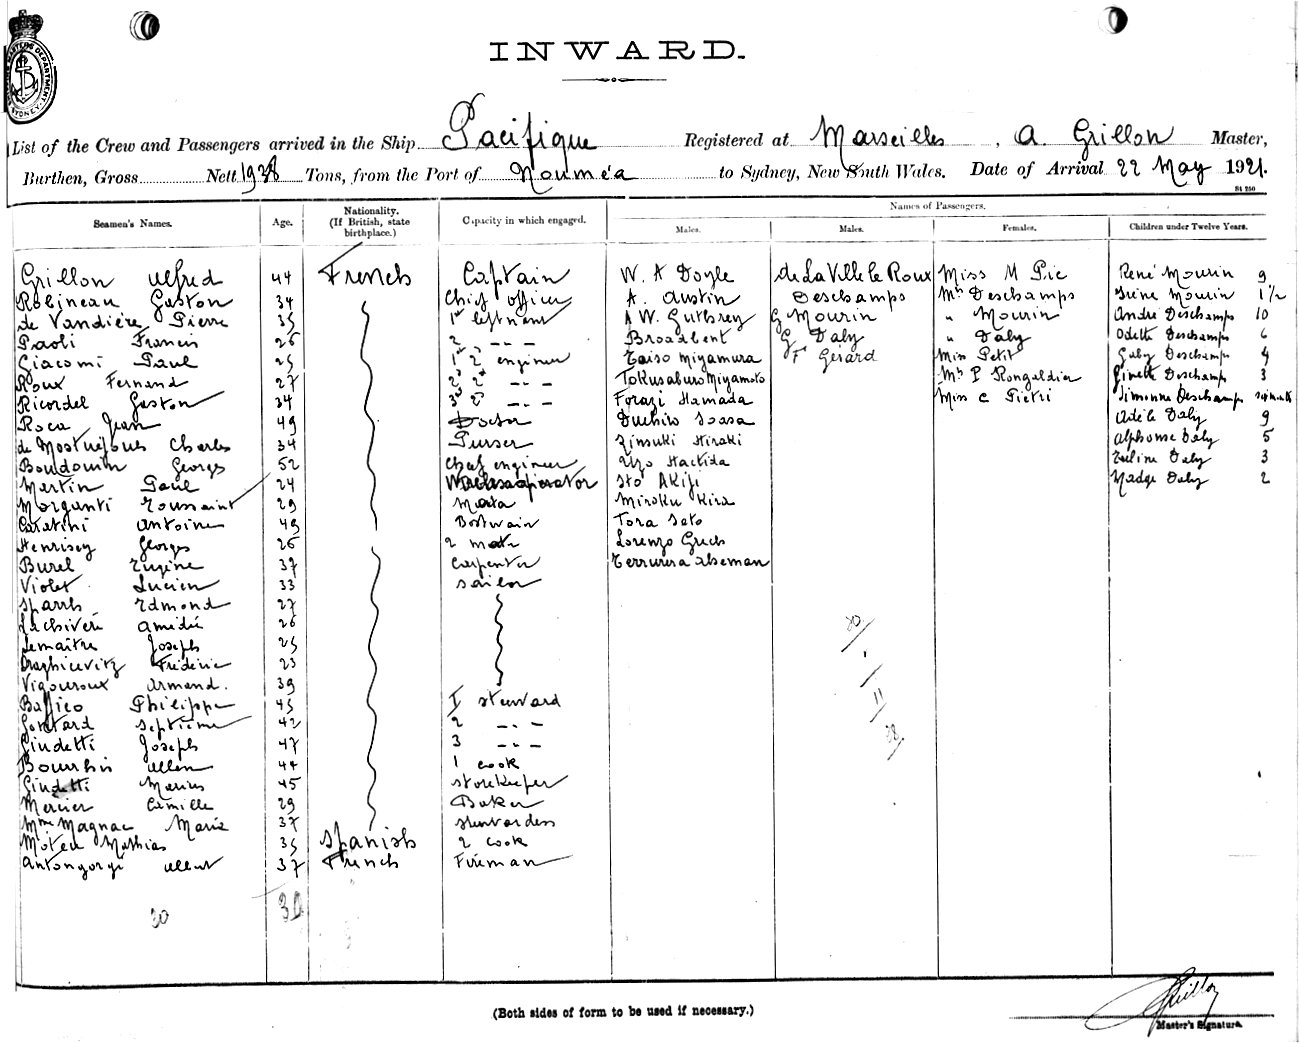 INWARD.
List of the Crew and Passengers arrived in the Ship Pacifique Registered at Marseilles, A. Grillon Master,
Burthen, Gross Nett 1938 Tons, from the Port of Nouméa to Sydney, New South Wales. Date of Arrival 22 May 1921.
St 250
Seamen's Names. Age. Nationality. (If British, state birthplace.) Capacity in which engaged. Names of Passengers.
Males. Males. Females. Children under Twelve Years.
Grillon Alfred 44 French Captain W. A Doyle de La Ville le Roux Miss M Pic René Mourin 9
Robineau Gaston 34 Chief officer A. Austin Deschamps Mrs Deschamps Irène Mourin 1 1/2
de Vandière Pierre 35 1st leftnant A W. Guthrey G Mourin " Mourin André Deschamps 10
Paoli Francis 26 2 -- - Broadbent G Daly " Daly Odette Deschamps 6
Giacomi Paul 25 1st 2d engineer Taiso Miyamura F Gérard Miss Petit Gaby Deschamps 4
Roux Fernand 27 2d 2d -- - Tokusaburo Miyamoto Mrs P Rongaldier Ginette Deschamps 3
Ricordel Gaston 34 3d 2d -- - Forazi Hamada Miss C Pietri Simonne Deschamps
Roca Jean 49 Doctor Adèle Daly 9
de Mostuéjouls Charles 34 Purser Zinsuki Hiraki Alphonse Daly 5
Boudouin Georges 52 Chef engineer Uzo Hachida Daly 3
Martin Paul 24 Wirelessoperator Ito Akiji Madge Daly 2
Morganti Toussaint 29 Mata Miroku Kira
Caratini Antoine 49 Bostwain Tora Sato
Henrisey Georges 26 2 mate Lorenzo Grech
Burel Eugène 37 Carpenter
Violet Lucien 33 Sailor
Sparrh Edmond 27
Lachiveri Amédé 26
Lemaître Joseph 25
Draghicevitz Frédéric 23
Vigouroux Armand. 39
Baffico Philippe 45 I steward
Gontard Septième 42 2 -- -
Giudetti Joseph 47 3 -- -
Bourhis Allen 44 1 cook
Giudetti Marius 45 Storekeeper
Mercier Camille 29 Baker
Mme Magnac Marie 37 Stewardess
Moteu Mathias 35 Spanish 2 cook
Antongorgi Albert 37 French Fireman
30 30
(Both sides of form to be used if necessary.)
Grillon
Master's Signature.